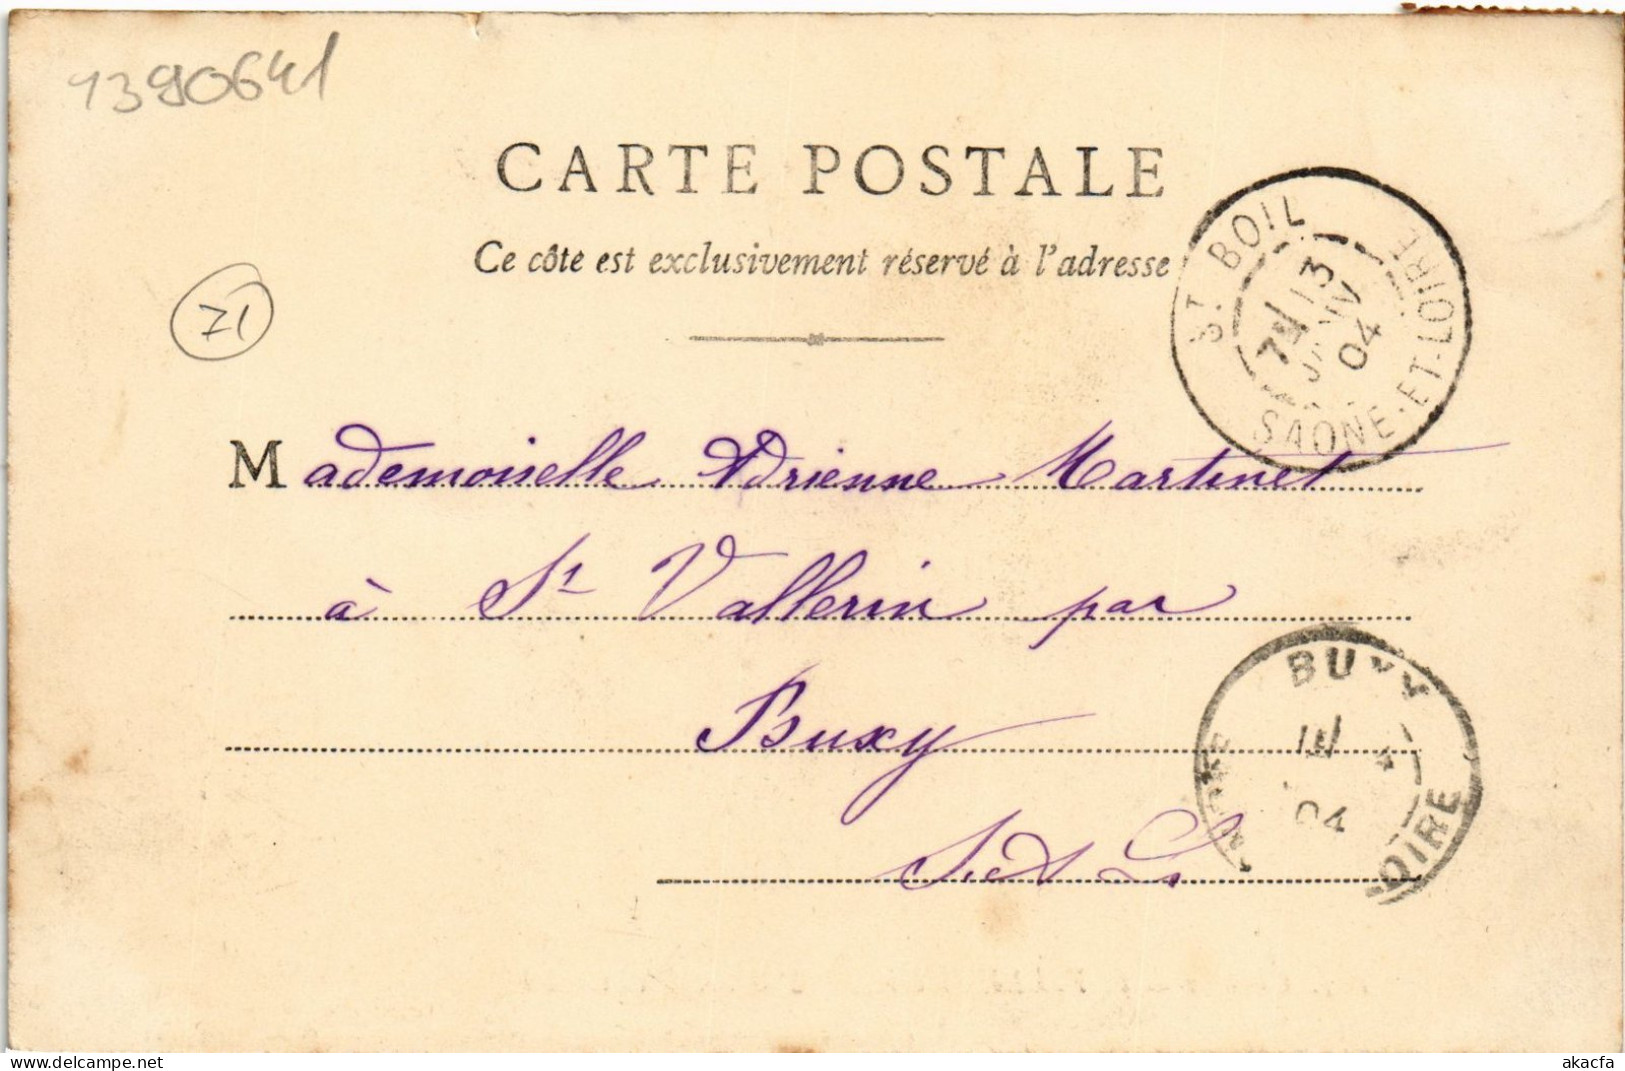 1390641
CARTE POSTALE
Ce côte est exclusivement réservé à l'adresse
71
ST BOIL
7E 13
JANV
04
SAONE-ET-LOIRE
Mademoiselle Adrienne Martinet
à St Vallerin par
Buxy
S. & L.
BUXY
04
LOIRE
akacfa